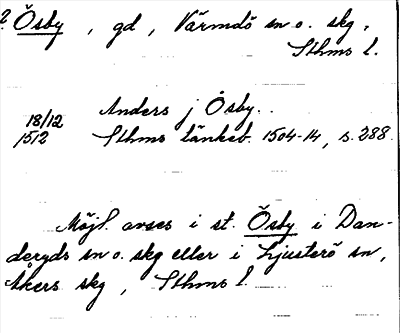 ? Ösby, gd, Värmdö sn o. skg,
Sthms l.
18/12 Anders j Ösby.
1512 Sthms tänkeb. 1504-14, s. 288.
Möjl. avses i st. Ösby i Dan-
deryds sn o. skg eller i Ljusterö sn,
Åkers skg, Sthms l.